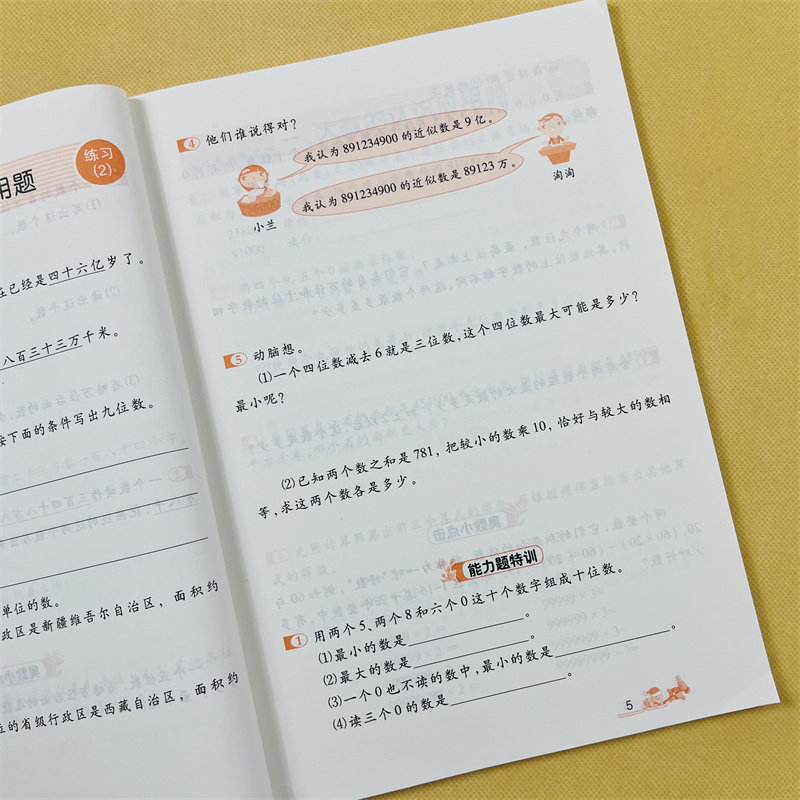 用题
练习
(2)
在已经是四十六亿岁了。
八百三十三万千米。
按下面的条件写出九位数。
单位的数。
政区是新疆维吾尔自治区，面积约
位的省级行政区是西藏自治区，面积约
4 他们谁说得对？
我认为 891234900 的近似数是 9 亿。
我认为 891234900 的近似数是 89123 万。
小兰
淘淘
5 动脑想。
(1)一个四位数减去 6 就是三位数，这个四位数最大可能是多少？
最小呢？
(2)已知两个数之和是 781，把较小的数乘 10，恰好与较大的数相
等，求这两个数各是多少。
能力题特训
1 用两个 5、两个 8 和六个 0 这十个数字组成十位数。
(1)最小的数是____________。
(2)最大的数是____________。
(3)一个 0 也不读的数中，最小的是____________。
(4)读三个 0 的数是____________。
5